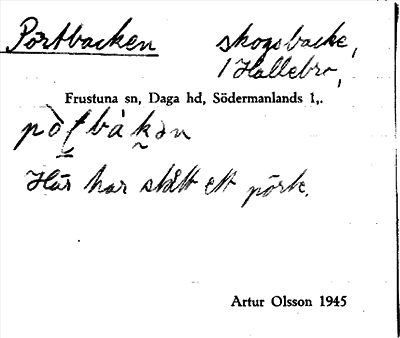 Pörtbacken
skogsbacke,
i Hallebro,
Frustuna sn, Daga hd, Södermanlands l,.
Här har stått ett pörte.
Artur Olsson 1945